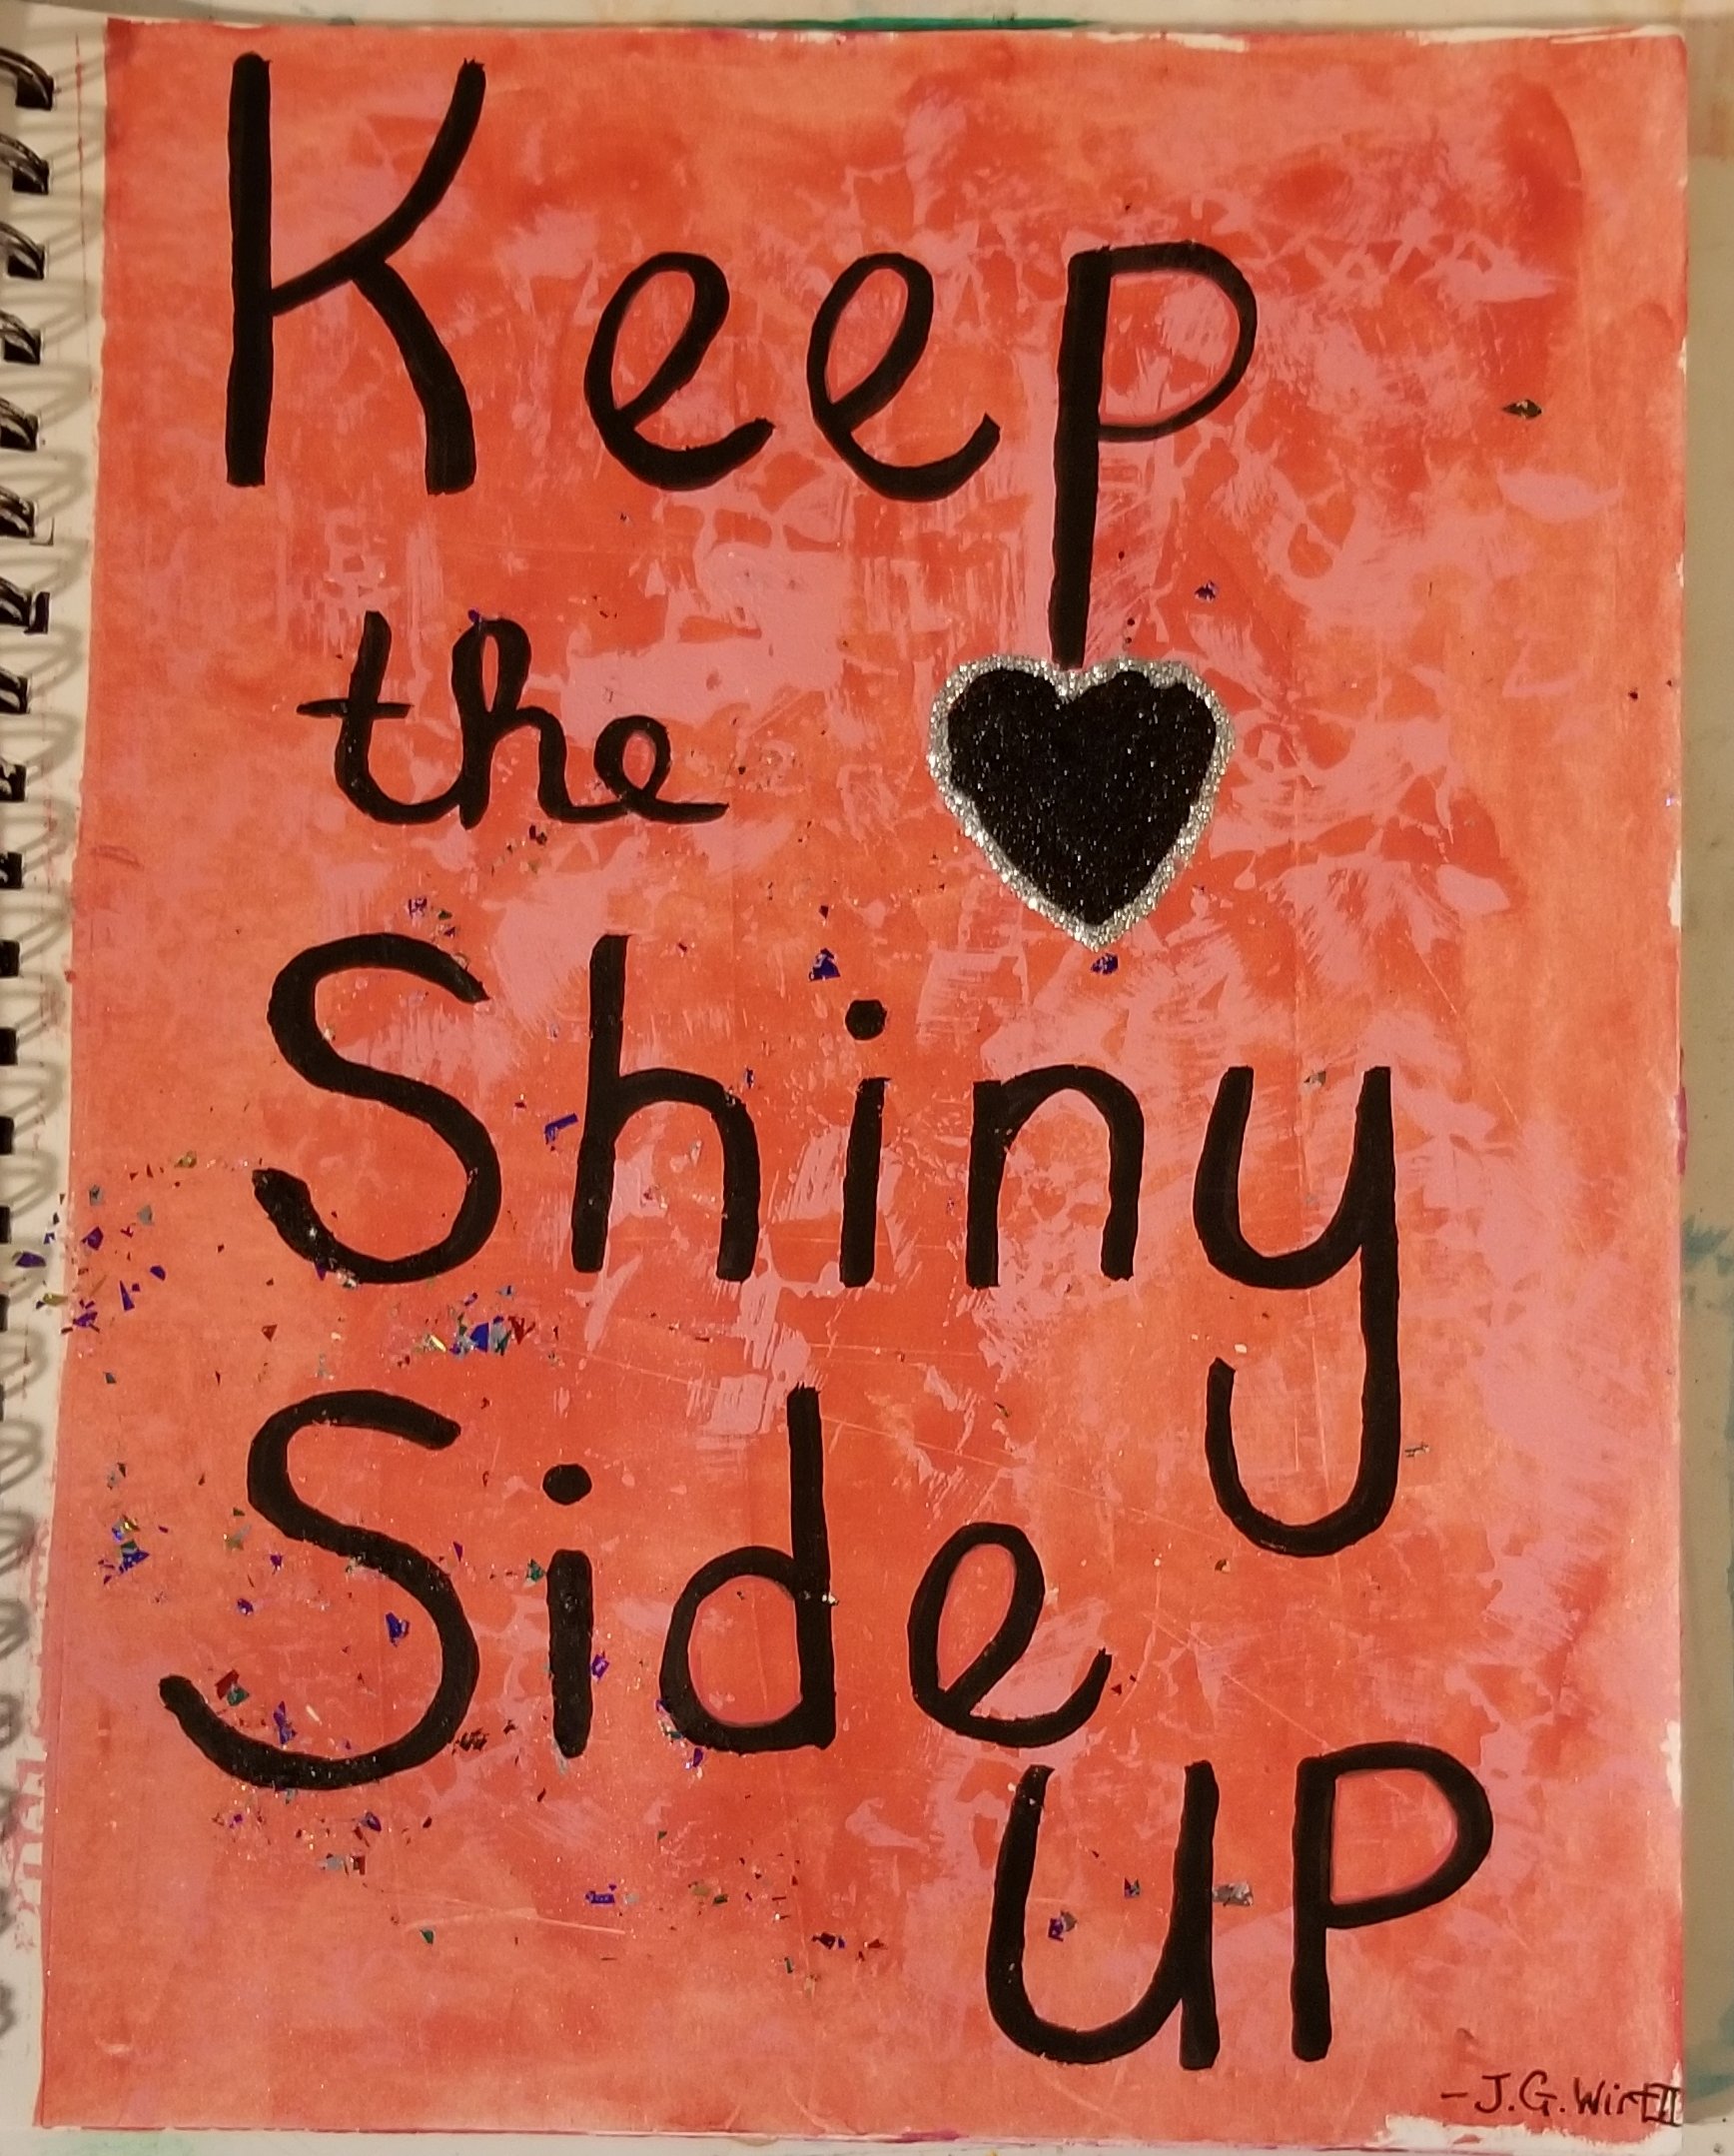 Keep
the
Shiny
Side
UP
- J.G. Wirt II